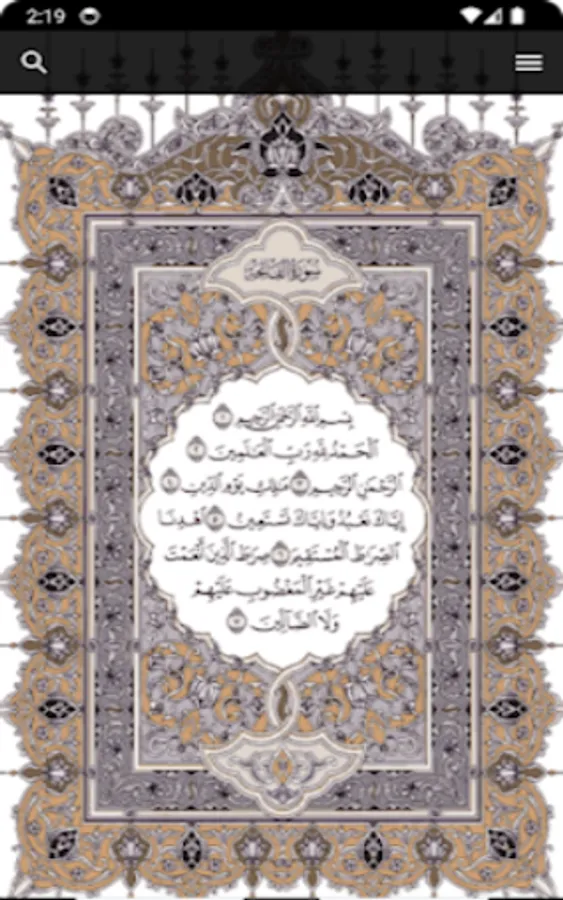 2:19
سورة الفاتحة
بِسْمِ ٱللَّهِ ٱلرَّحْمَٰنِ ٱلرَّحِيمِ ١
ٱلْحَمْدُ لِلَّهِ رَبِّ ٱلْعَٰلَمِينَ ٢
ٱلرَّحْمَٰنِ ٱلرَّحِيمِ ٣ مَٰلِكِ يَوْمِ ٱلدِّينِ ٤
إِيَّاكَ نَعْبُدُ وَإِيَّاكَ نَسْتَعِينُ ٥ ٱهْدِنَا
ٱلصِّرَٰطَ ٱلْمُسْتَقِيمَ ٦ صِرَٰطَ ٱلَّذِينَ أَنْعَمْتَ
عَلَيْهِمْ غَيْرِ ٱلْمَغْضُوبِ عَلَيْهِمْ
وَلَا ٱلضَّآلِّينَ ٧